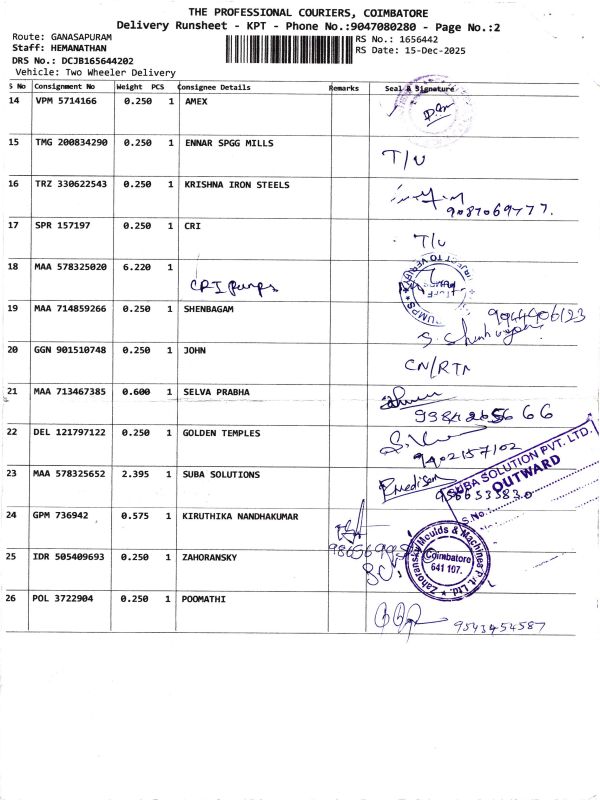 THE PROFESSIONAL COURIERS, COIMBATORE
Delivery Runsheet - KPT - Phone No.:9047080280 - Page No.:2
Route: GANASAPURAM
RS No.: 1656442
Staff: HEMANATHAN
RS Date: 15-Dec-2025
DRS No.: DCJB165644202
Vehicle: Two Wheeler Delivery
S No Consignment No Weight PCS Consignee Details Remarks Seal & Signature
14 VPM 5714166 0.250 1 AMEX
15 TMG 200834290 0.250 1 ENNAR SPGG MILLS T/U
16 TRZ 330622543 0.250 1 KRISHNA IRON STEELS
9087069777.
17 SPR 157197 0.250 1 CRI T/U
18 MAA 578325020 6.220 1 CRI Pumps
19 MAA 714859266 0.250 1 SHENBAGAM 9944906123
20 GGN 901510748 0.250 1 JOHN CN/RTN
21 MAA 713467385 0.600 1 SELVA PRABHA
9384265666
22 DEL 121797122 0.250 1 GOLDEN TEMPLES
9402157102
23 MAA 578325652 2.395 1 SUBA SOLUTIONS
SUBA SOLUTION PVT. LTD.
OUTWARD
S.No
24 GPM 736942 0.575 1 KIRUTHIKA NANDHAKUMAR
25 IDR 505409693 0.250 1 ZAHORANSKY
Zahoransky Moulds & Machines P. Ltd.
Coimbatore
641 107.
26 POL 3722904 0.250 1 POOMATHI
9543454587